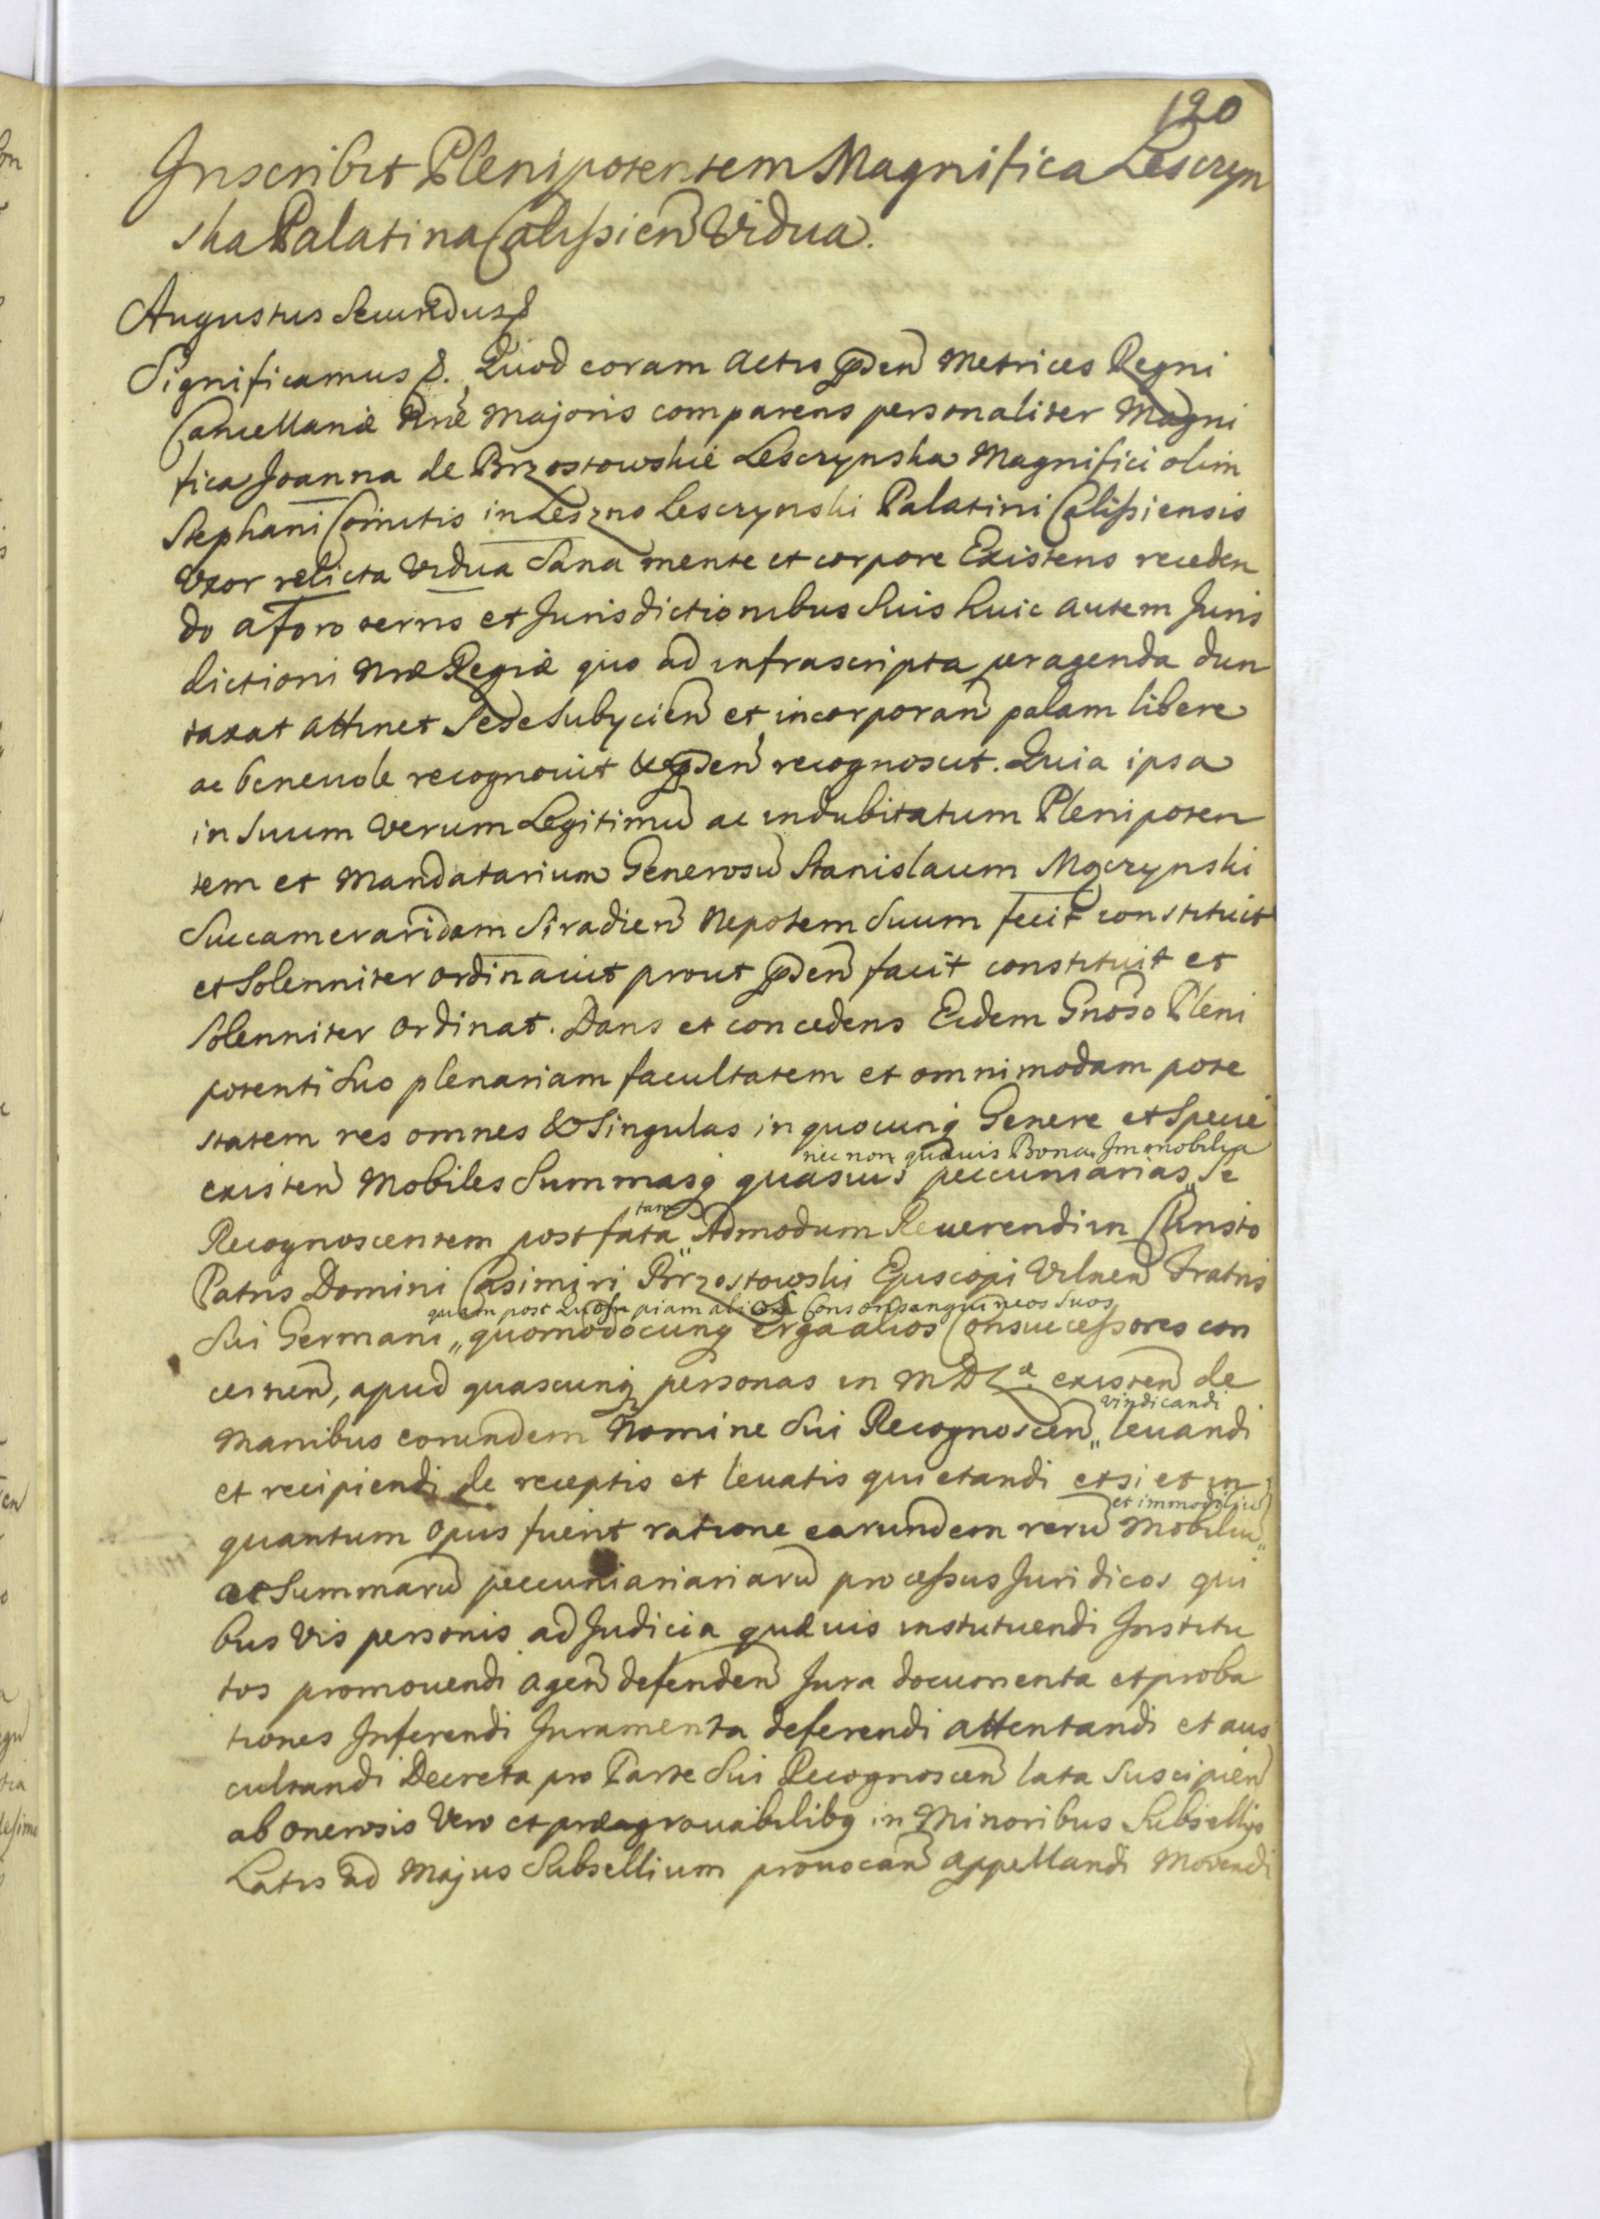 120
Inscribit Plenipotentem Magnifica Lesczyn
ska Palatina Calissien̄ Vidua.
Augustus Secundus
Significamus Quod coram Actis p̄sen̄ Metrices Regni
Cancellariæ N̄ræ Majoris comparens personaliter Magni
fica Joanna de Brzostowskie Lesczynska Magnifici olim
Stephani Comitis in Leszno Lesczynski Palatini Calissiensis
Vxor relicta Vidua Sana mente et corpore Existens receden
do a foro terris et Jurisdictionibus Suis huic autem Juris
dictioni Nræ Regiæ quo ad infrascripta peragenda dun
taxat attinet Sese Subycien̄ et incorporan̄ palam libere
ac beneuole recognouit & p̄sen̄ recognoscit. Quia ipsa
in Suum Verum Legitimū ac indubitatum Plenipoten
tem et Mandatarium Generosū Stanislaum Męczynski
Succameraridam Siradien̄ Nepotem Suum fecit constituit
et Solenniter ordinauit prout p̄sen̄ facit constituit et
Solenniter ordinat. Dans et concedens Eidem Gnōso Pleni
potenti Suo plenariam facultatem et omnimodam pote
statem res omnes & Singulas in quocunq Genere et Specie
nec non quæuis Bona Immobilia
existen̄ Mobiles Summasq quasuis peccuniarias,, Se
tam
Recognoscentem post fata,, Admodum Reuerendi in Christo
Patris Domini Casimiri Brzostowski Episcopi Vilnen̄ Fratris
quam post piam alios Consanguineos Suos
Sui Germani,, quomodocunq erga alios Consuccessores con
cernen̄, apud quascunq personas in M D L existen̄ de
vindicandi
Manibus eorundem Nomine Sui Recognoscen̄,, leuandi
et recipiendi de receptis et leuatis quietandi etsi et in
et immobiliū
quantum Opus fuerit ratione earundem rerū Mobiliū,,
et Summarū peccuniariariarū processus Juridicos qui
bus Vis personis ad Judicia quæuis instutuendi Institu
tos promouendi agen̄ defenden̄ Jura documenta et proba
tiones Inferendi Juramenta deferendi attentandi et aus
cultandi Decreta pro Parte Sui Recognoscen̄ lata Suscipien̄
ab onerosis Vero et prægrauabilibq in Minoribus Subsellijs
Latis ad Majus Subsellium prouocan̄ appellandi Mouendi